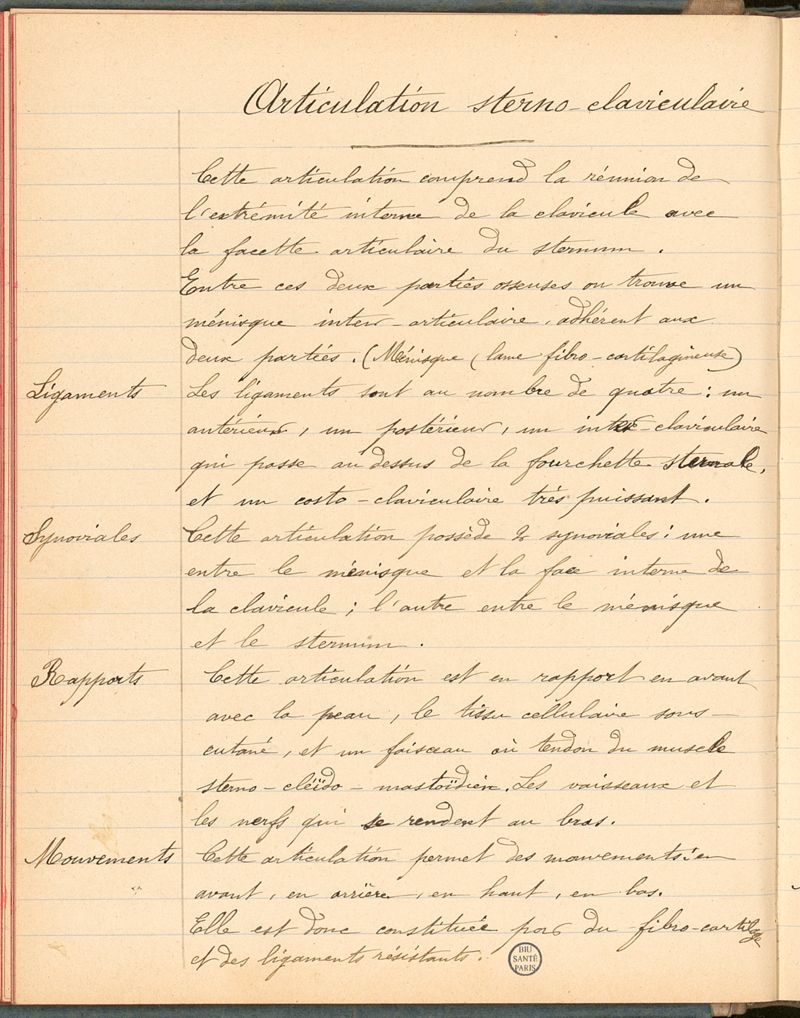 Articulation sterno-claviculaire
Cette articulation comprend la réunion de
l'extrémité interne de la clavicule avec
la facette articulaire du sternum.
Entre ces deux parties osseuses on trouve un
ménisque inter-articulaire, adhérent aux
deux parties. (Ménisque (lame fibro-cartilagineuse)
Ligaments
Les ligaments sont au nombre de quatre : un
antérieur, un postérieur, un inter-claviculaire
qui passe au dessus de la fourchette sternale,
et un costo-claviculaire très puissant.
Synoviales
Cette articulation possède 2 synoviales : une
entre le ménisque et la face interne de
la clavicule ; l'autre entre le ménisque
et le sternum.
Rapports
Cette articulation est en rapport en avant
avec la peau, le tissu cellulaire sous-
cutané, et un faisceau où tendon du muscle
sterno-cléïdo-mastoïdien. Les vaisseaux et
les nerfs qui se rendent au bras.
Mouvements
Cette articulation permet des mouvements : en
avant, en arrière, en haut, en bas.
Elle est donc constituée par du fibro-cartilage
et des ligaments résistants.
BIU
SANTÉ
PARIS